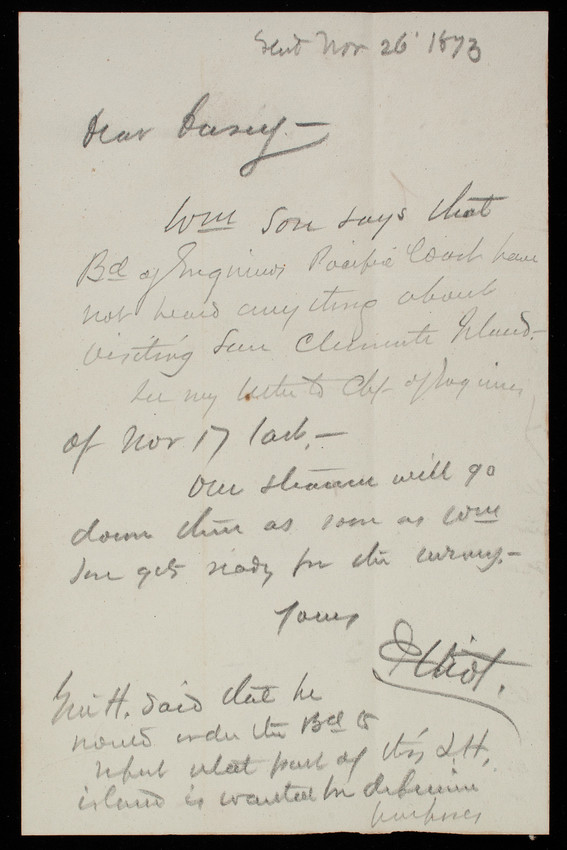 Nov 26 1873
Dear Casey.—
Wm son says that
Bd of Engineers Pacific Coast have
not heard anything about
visiting San Clemente Island.—
See my letter to Chf of Engineers
of Nov 17 last.—
Our steamer will go
down there as soon as Wm
son gets ready for the survey.—
Yours
Elliot.
Gen H. said that he
would order the Bd to
report what part of this L.H.
island is wanted for defensive
purposes